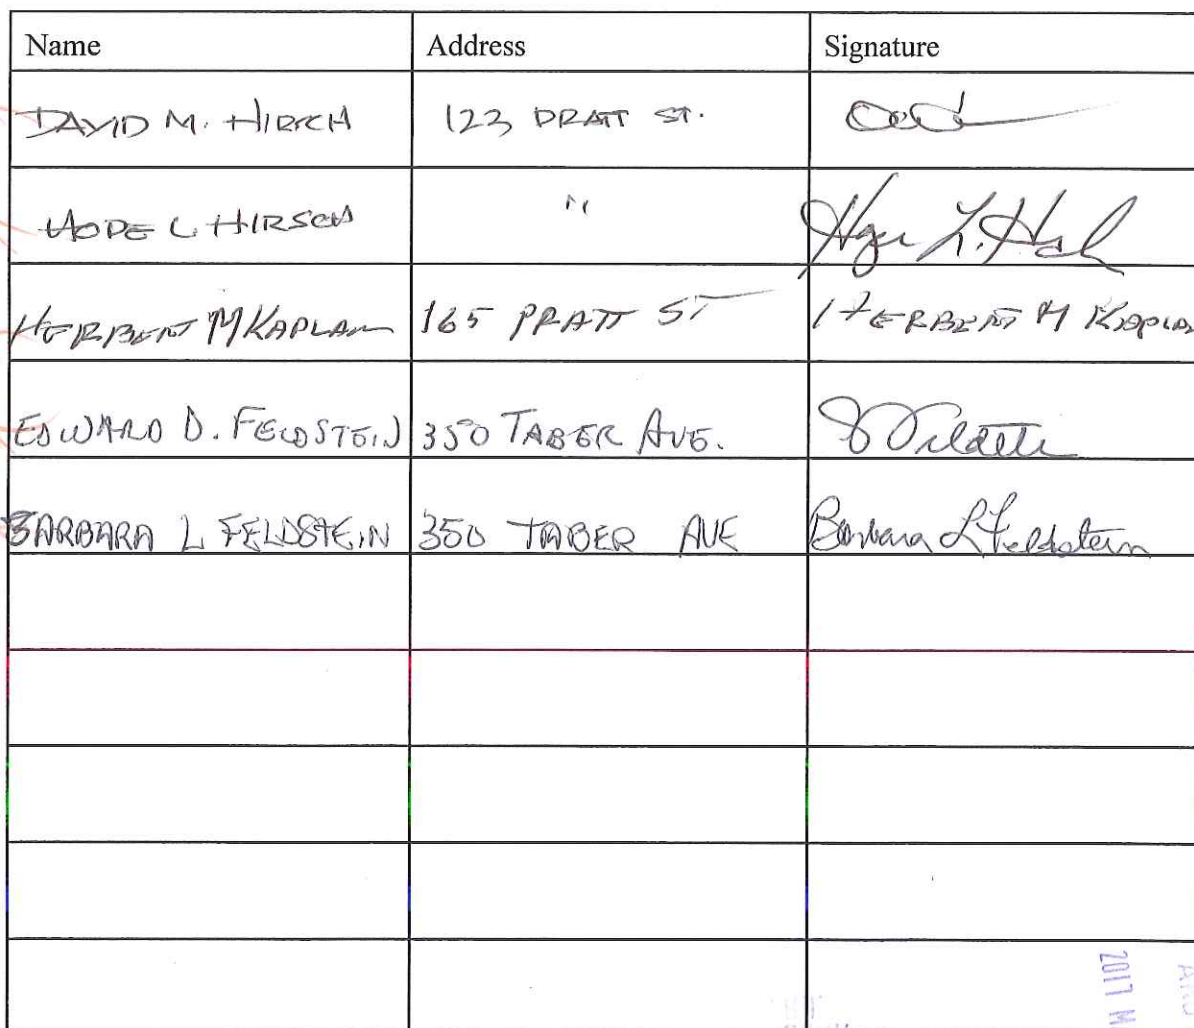 Name Address Signature
DAVID M. HIRSCH 122 PRATT ST.
HOPE L HIRSCH " Hope L. Hirsch
HERBERT M KAPLAN 165 PRATT ST HERBERT M KAPLAN
EDWARD D. FELDSTEIN 350 TABER AVE.
BARBARA L FELDSTEIN 350 TABER AVE Barbara L Feldstein
2017 M